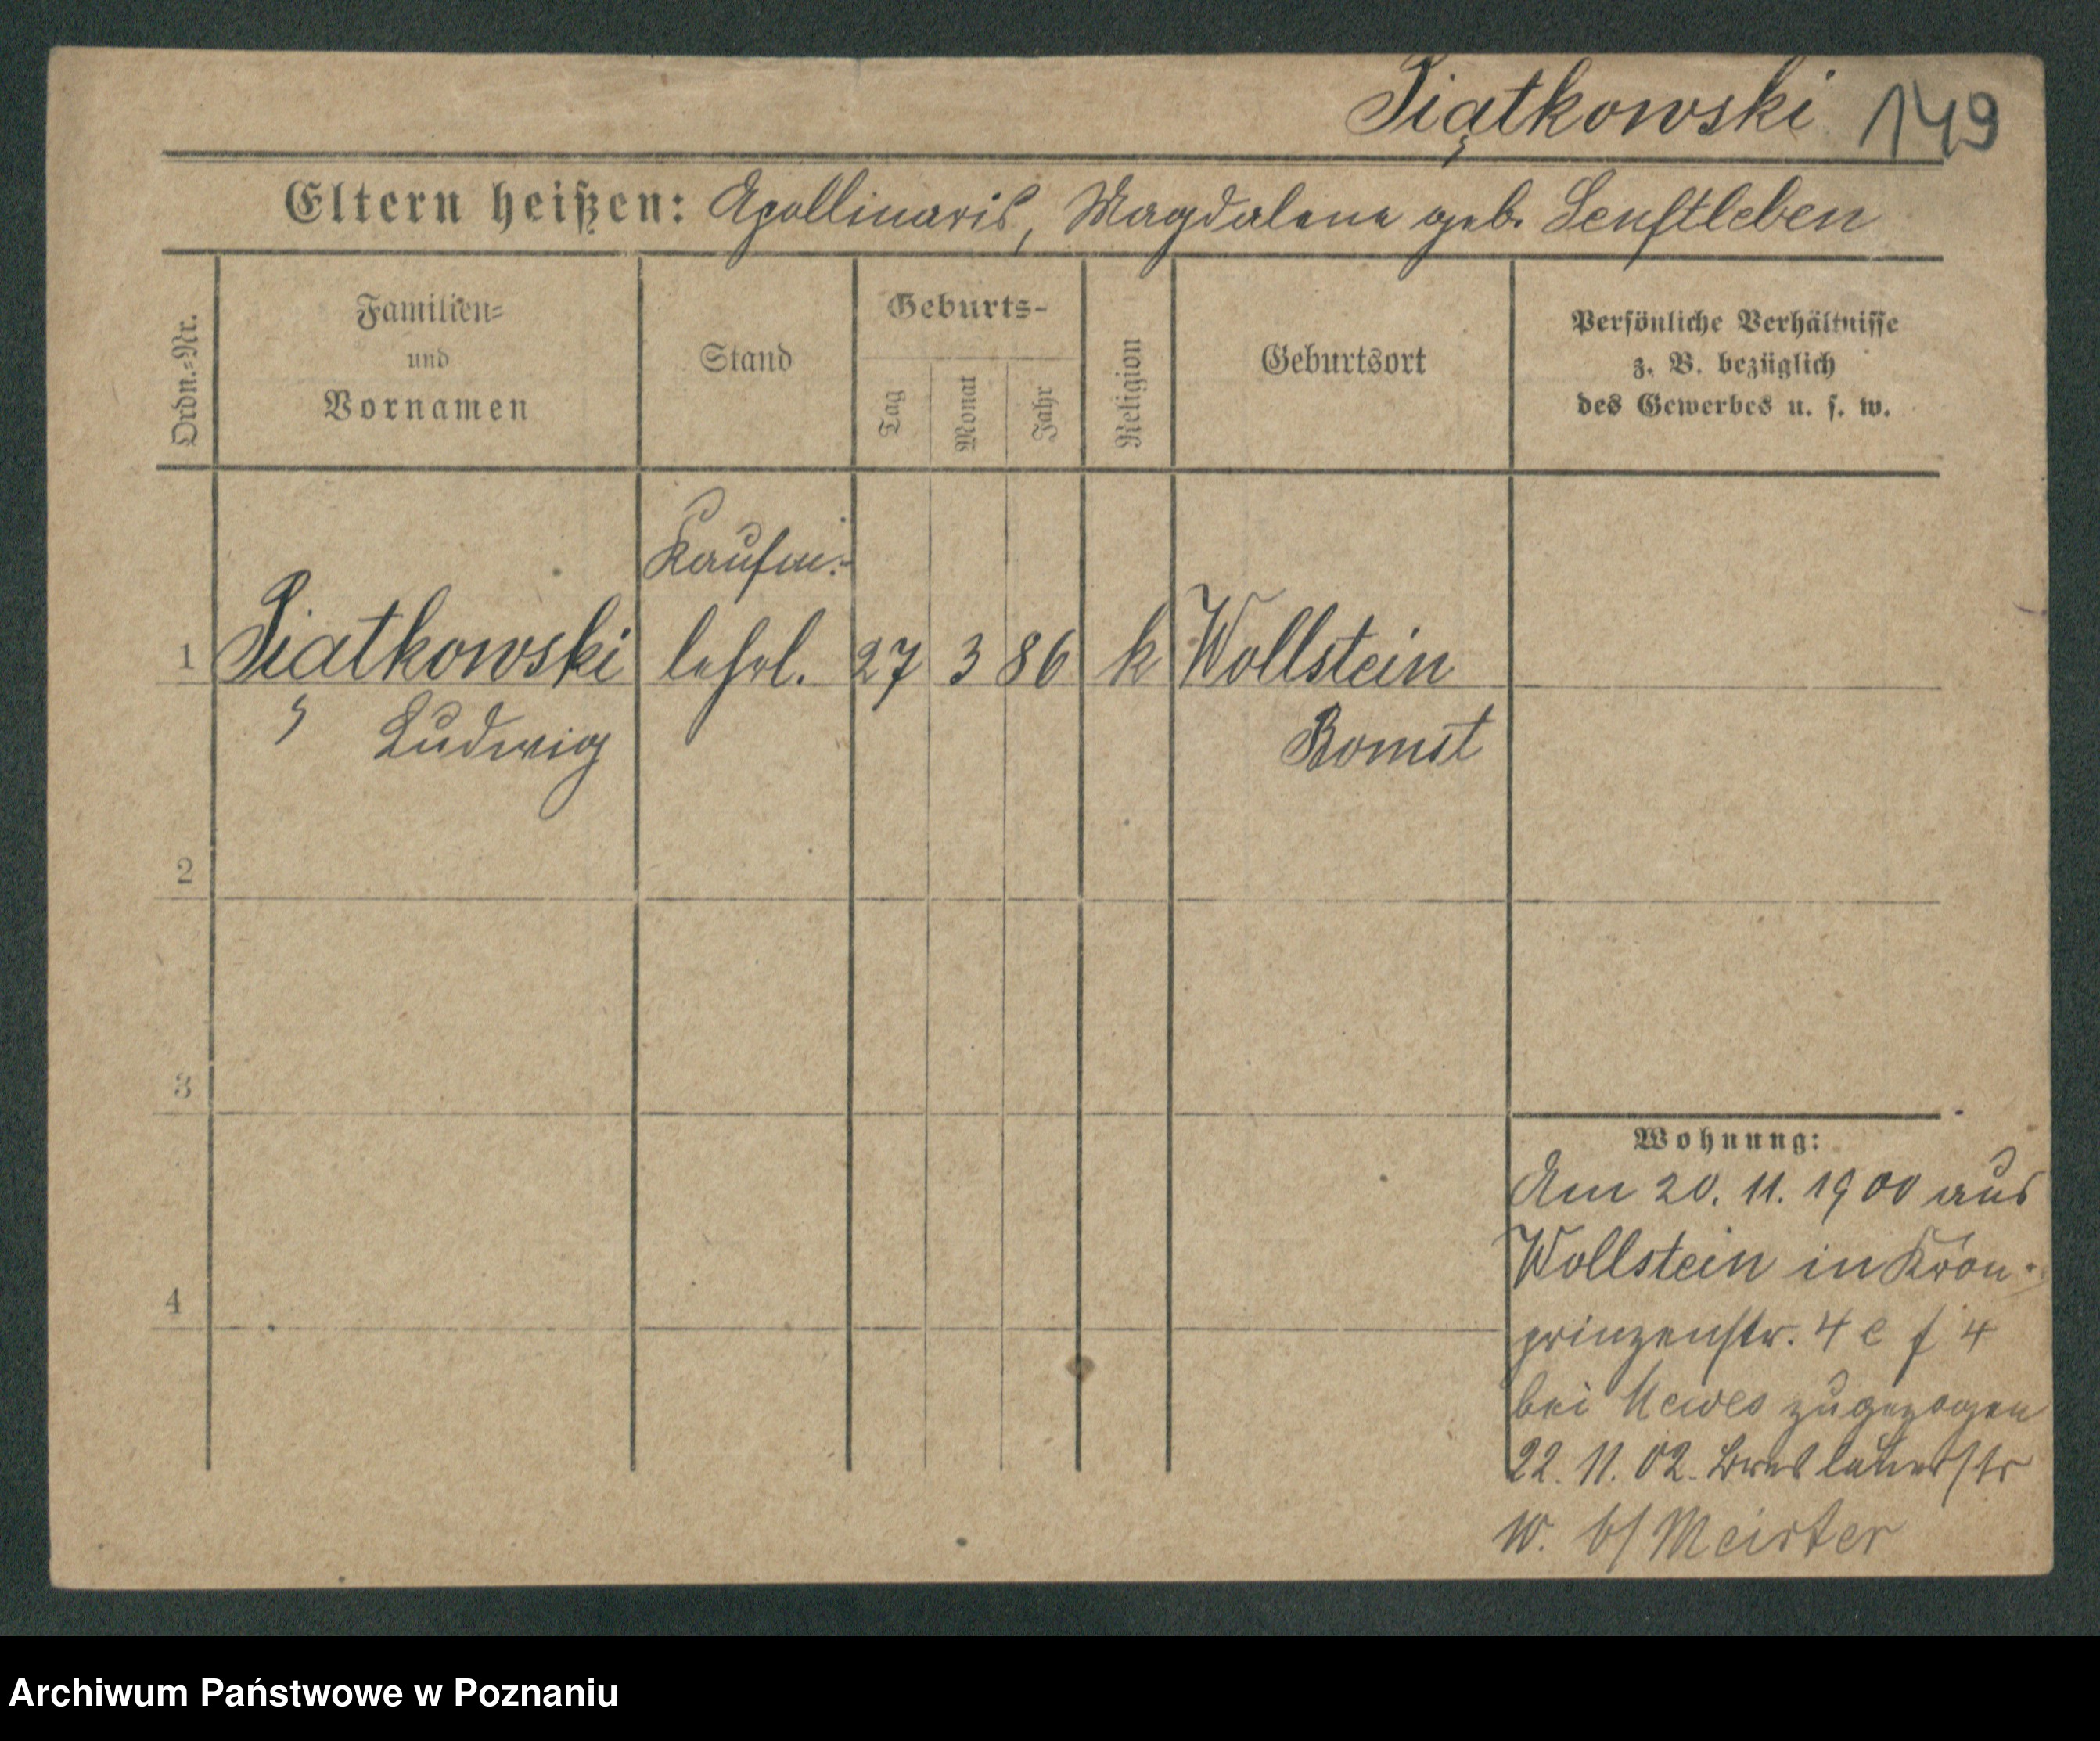 Piątkowski 149
Eltern heißen: Apollinaris, Magdalena geb. Senftleben
Ordn.-Nr.
Familien-
und
Vornamen
Stand
Geburts-
Tag
Monat
Jahr
Religion
Geburtsort
Persönliche Verhältnisse
z. B. bezüglich
des Gewerbes u. s. w.
Kaufm.-
1 Piątkowski lehrl. 27 3 86 k Wollstein
Ludwig Bomst
2
3
4
Wohnung:
Am 20. 11. 1900 aus
Wollstein in Kron-
prinzenstr. 4 e f 4
bei zugezogen
22. 11. 02. Breslauerstr
10. b/ Meister
Archiwum Państwowe w Poznaniu